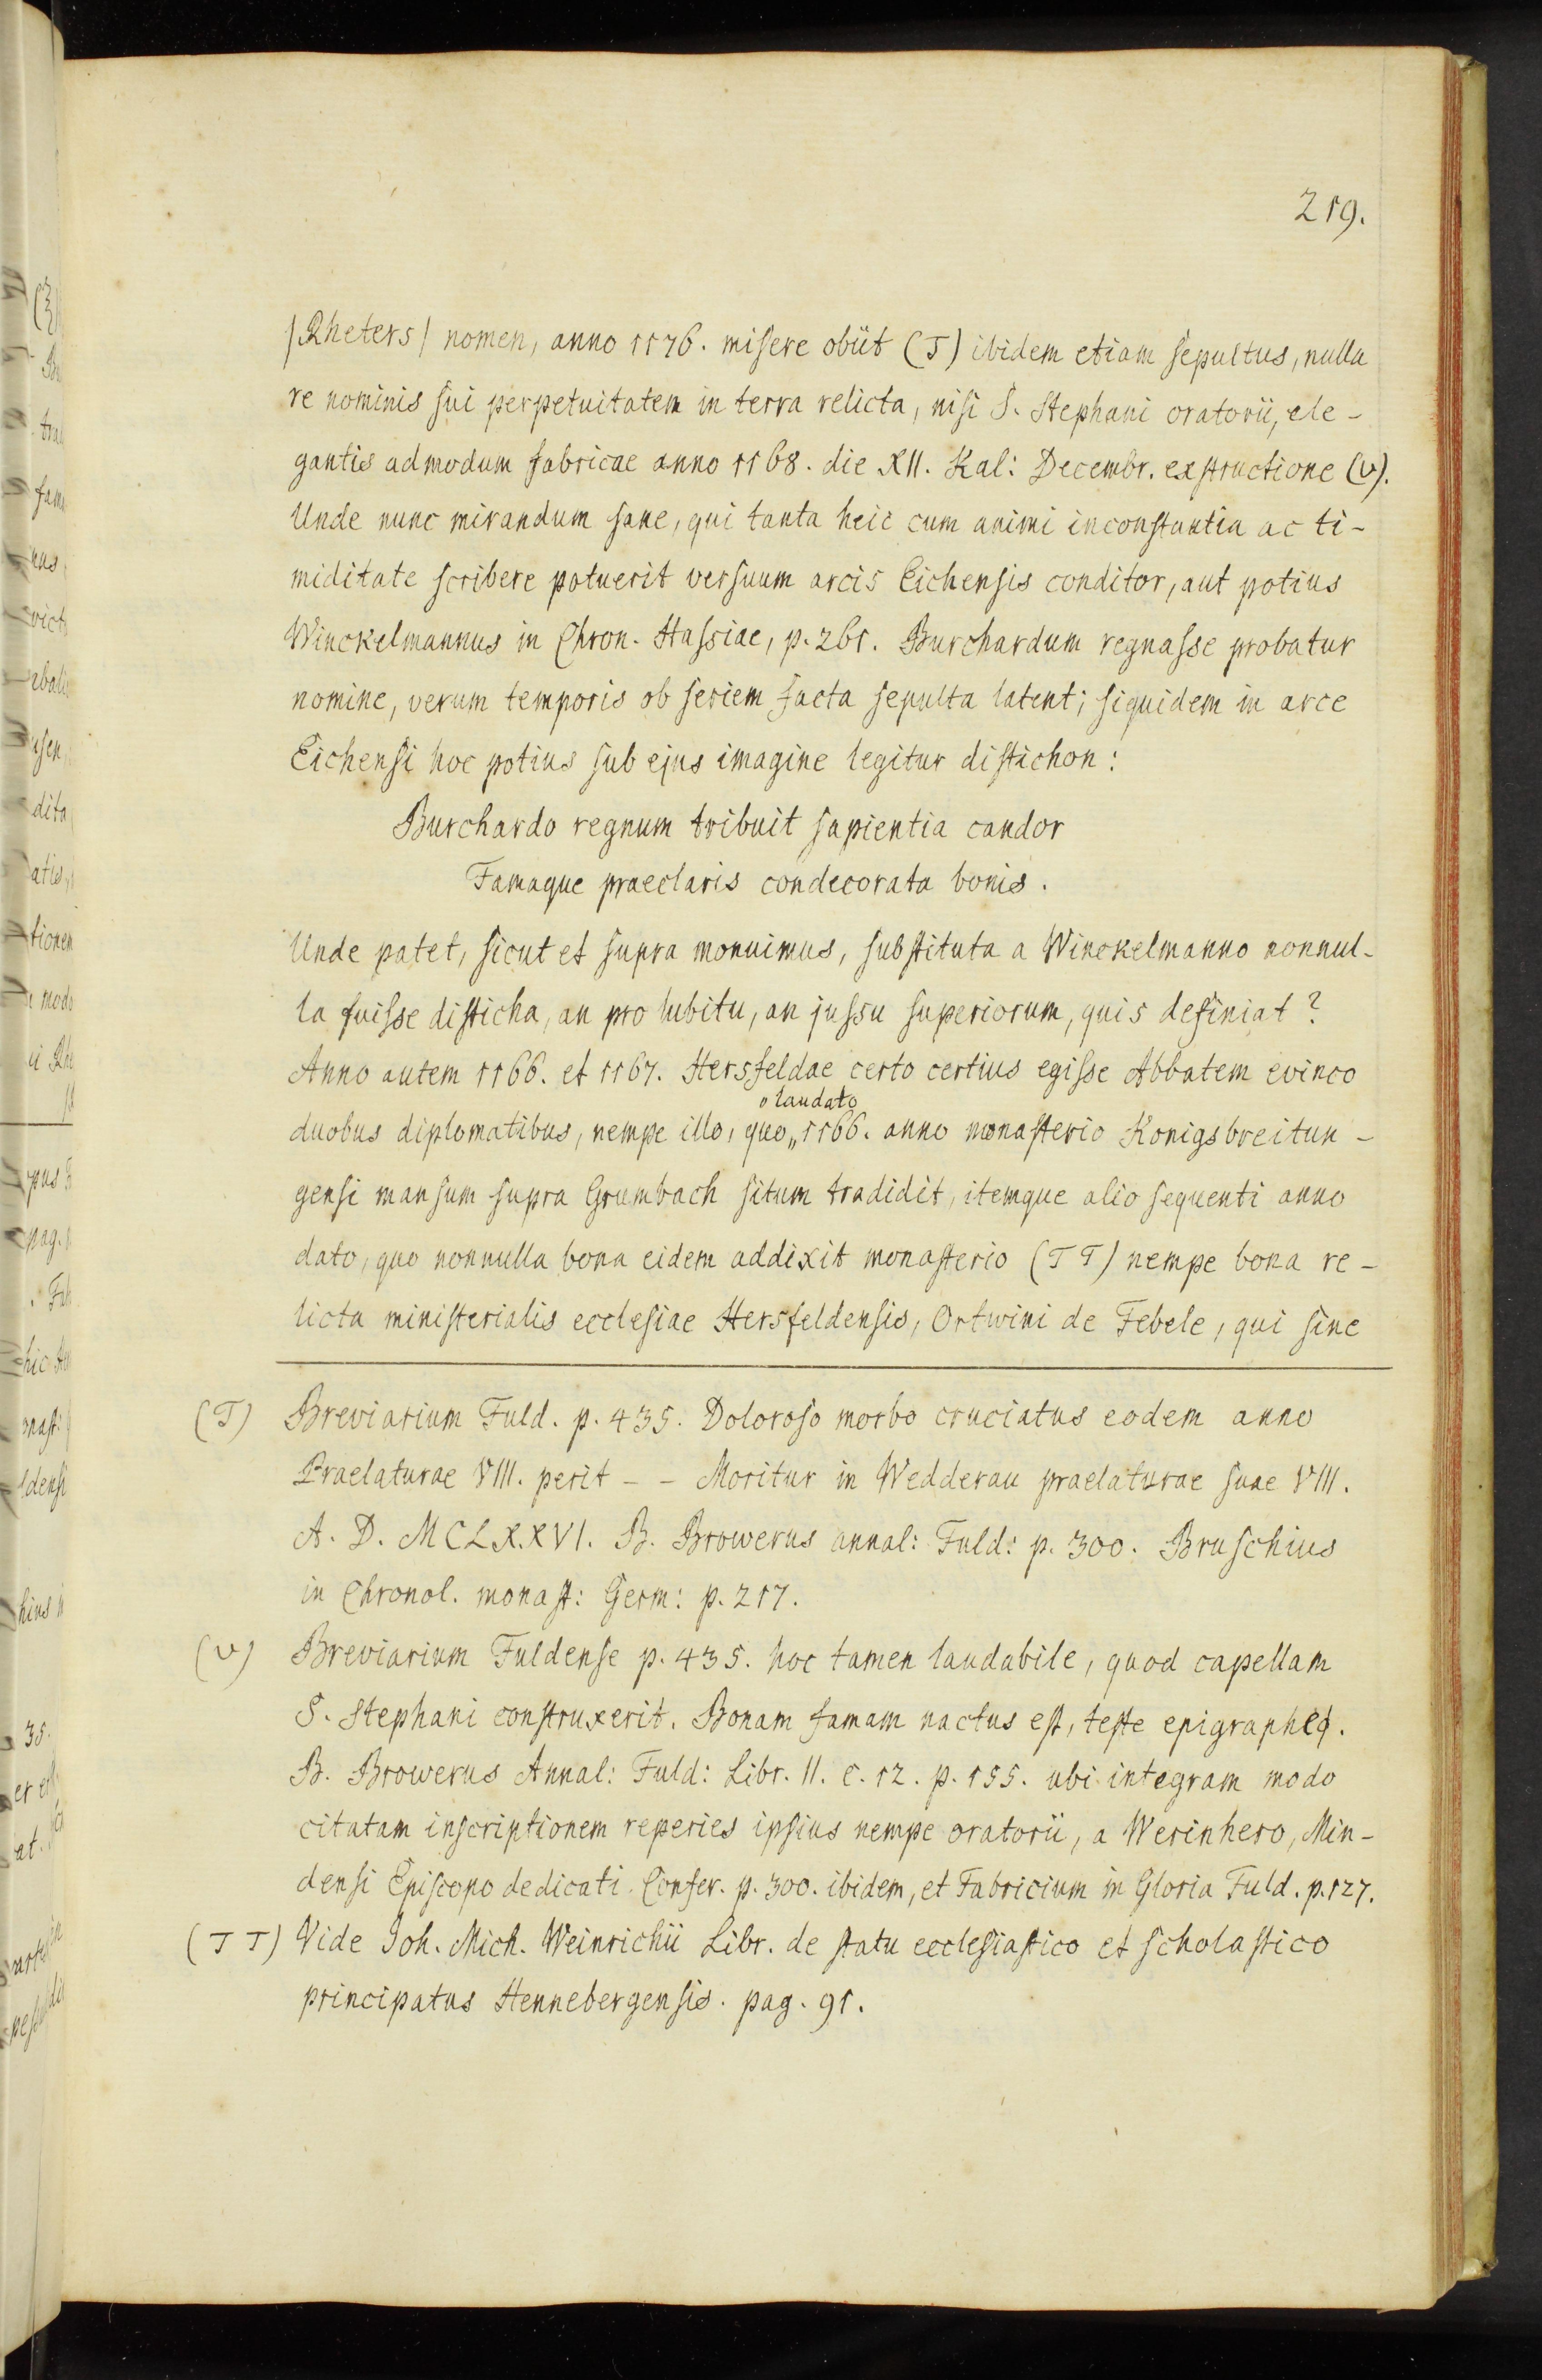 219.
/Rheters/ nomen, anno 1176. misere obiit (T) ibidem etiam sepultus, nulla
re nominis sui perpetuitatem in terra relicta, nisi S. Stephani oratorii, ele-
gantis admodum fabricae anno 1168. die XII. Kal: Decembr. exstructione (V).
Unde nunc mirandum sane, qui tanta heic cum animi inconstantia ac ti-
miditate scribere potuerit versuum arcis Eichensis conditor, aut potius
Winckelmannus in Chron. Hassiae, p. 261. Burchardum regnasse probatur
nomine, verum temporis ob seriem facta sepulta latent; siquidem in arce
Eichensi hoc potius sub ejus imagine legitur distichon:
Burchardo regnum tribuit sapientia candor
Famaque praeclaris condecorata bonis.
Unde patet, sicut et supra monuimus, substituta a Winckelmanno nonnul-
la fuisse disticha, an pro lubitu, an jussu superiorum, quis definiat?
Anno autem 1166. et 1167. Hersfeldae certo certius egisse Abbatem evinco
laudato
duobus diplomatibus, nempe illo, quo„ 1166. anno monasterio Konigsbreitun-
gensi mansum supra Grumbach situm tradidit, itemque alio sequenti anno
dato, quo nonnulla bona eidem addixit monasterio (TT) nempe bona re-
licta ministerialis ecclesiae Hersfeldensis, Ortwini de Febele, qui sine
(T) Breviarium Fuld. p. 435. Doloroso morbo cruciatus eodem anno
Praelaturae VIII. perit - - Moritur in Wedderau praelaturae suae VIII.
A. D. MCLXXVI. B. Browerus annal: Fuld: p. 300. Bruschius
in Chronol. monast: Germ: p. 217.
(V) Breviarium Fuldense p. 435. hoc tamen laudabile, quod capellam
S. Stephani construxerit. Bonam famam nactus est, teste epigraphe.
B. Browerus Annal: Fuld: Libr. II. c. 12. p. 155. ubi integram modo
citatam inscriptionem reperies ipsius nempe oratorii, a Werinhero, Min-
densi Episcopo dedicati. Confer. p. 300. ibidem, et Fabricium in Gloria Fuld. p. 127.
(TT) Vide Joh. Mich. Weinrichii Libr. de statu ecclesiastico et scholastico
principatus Hennebergensis. pag. 91.